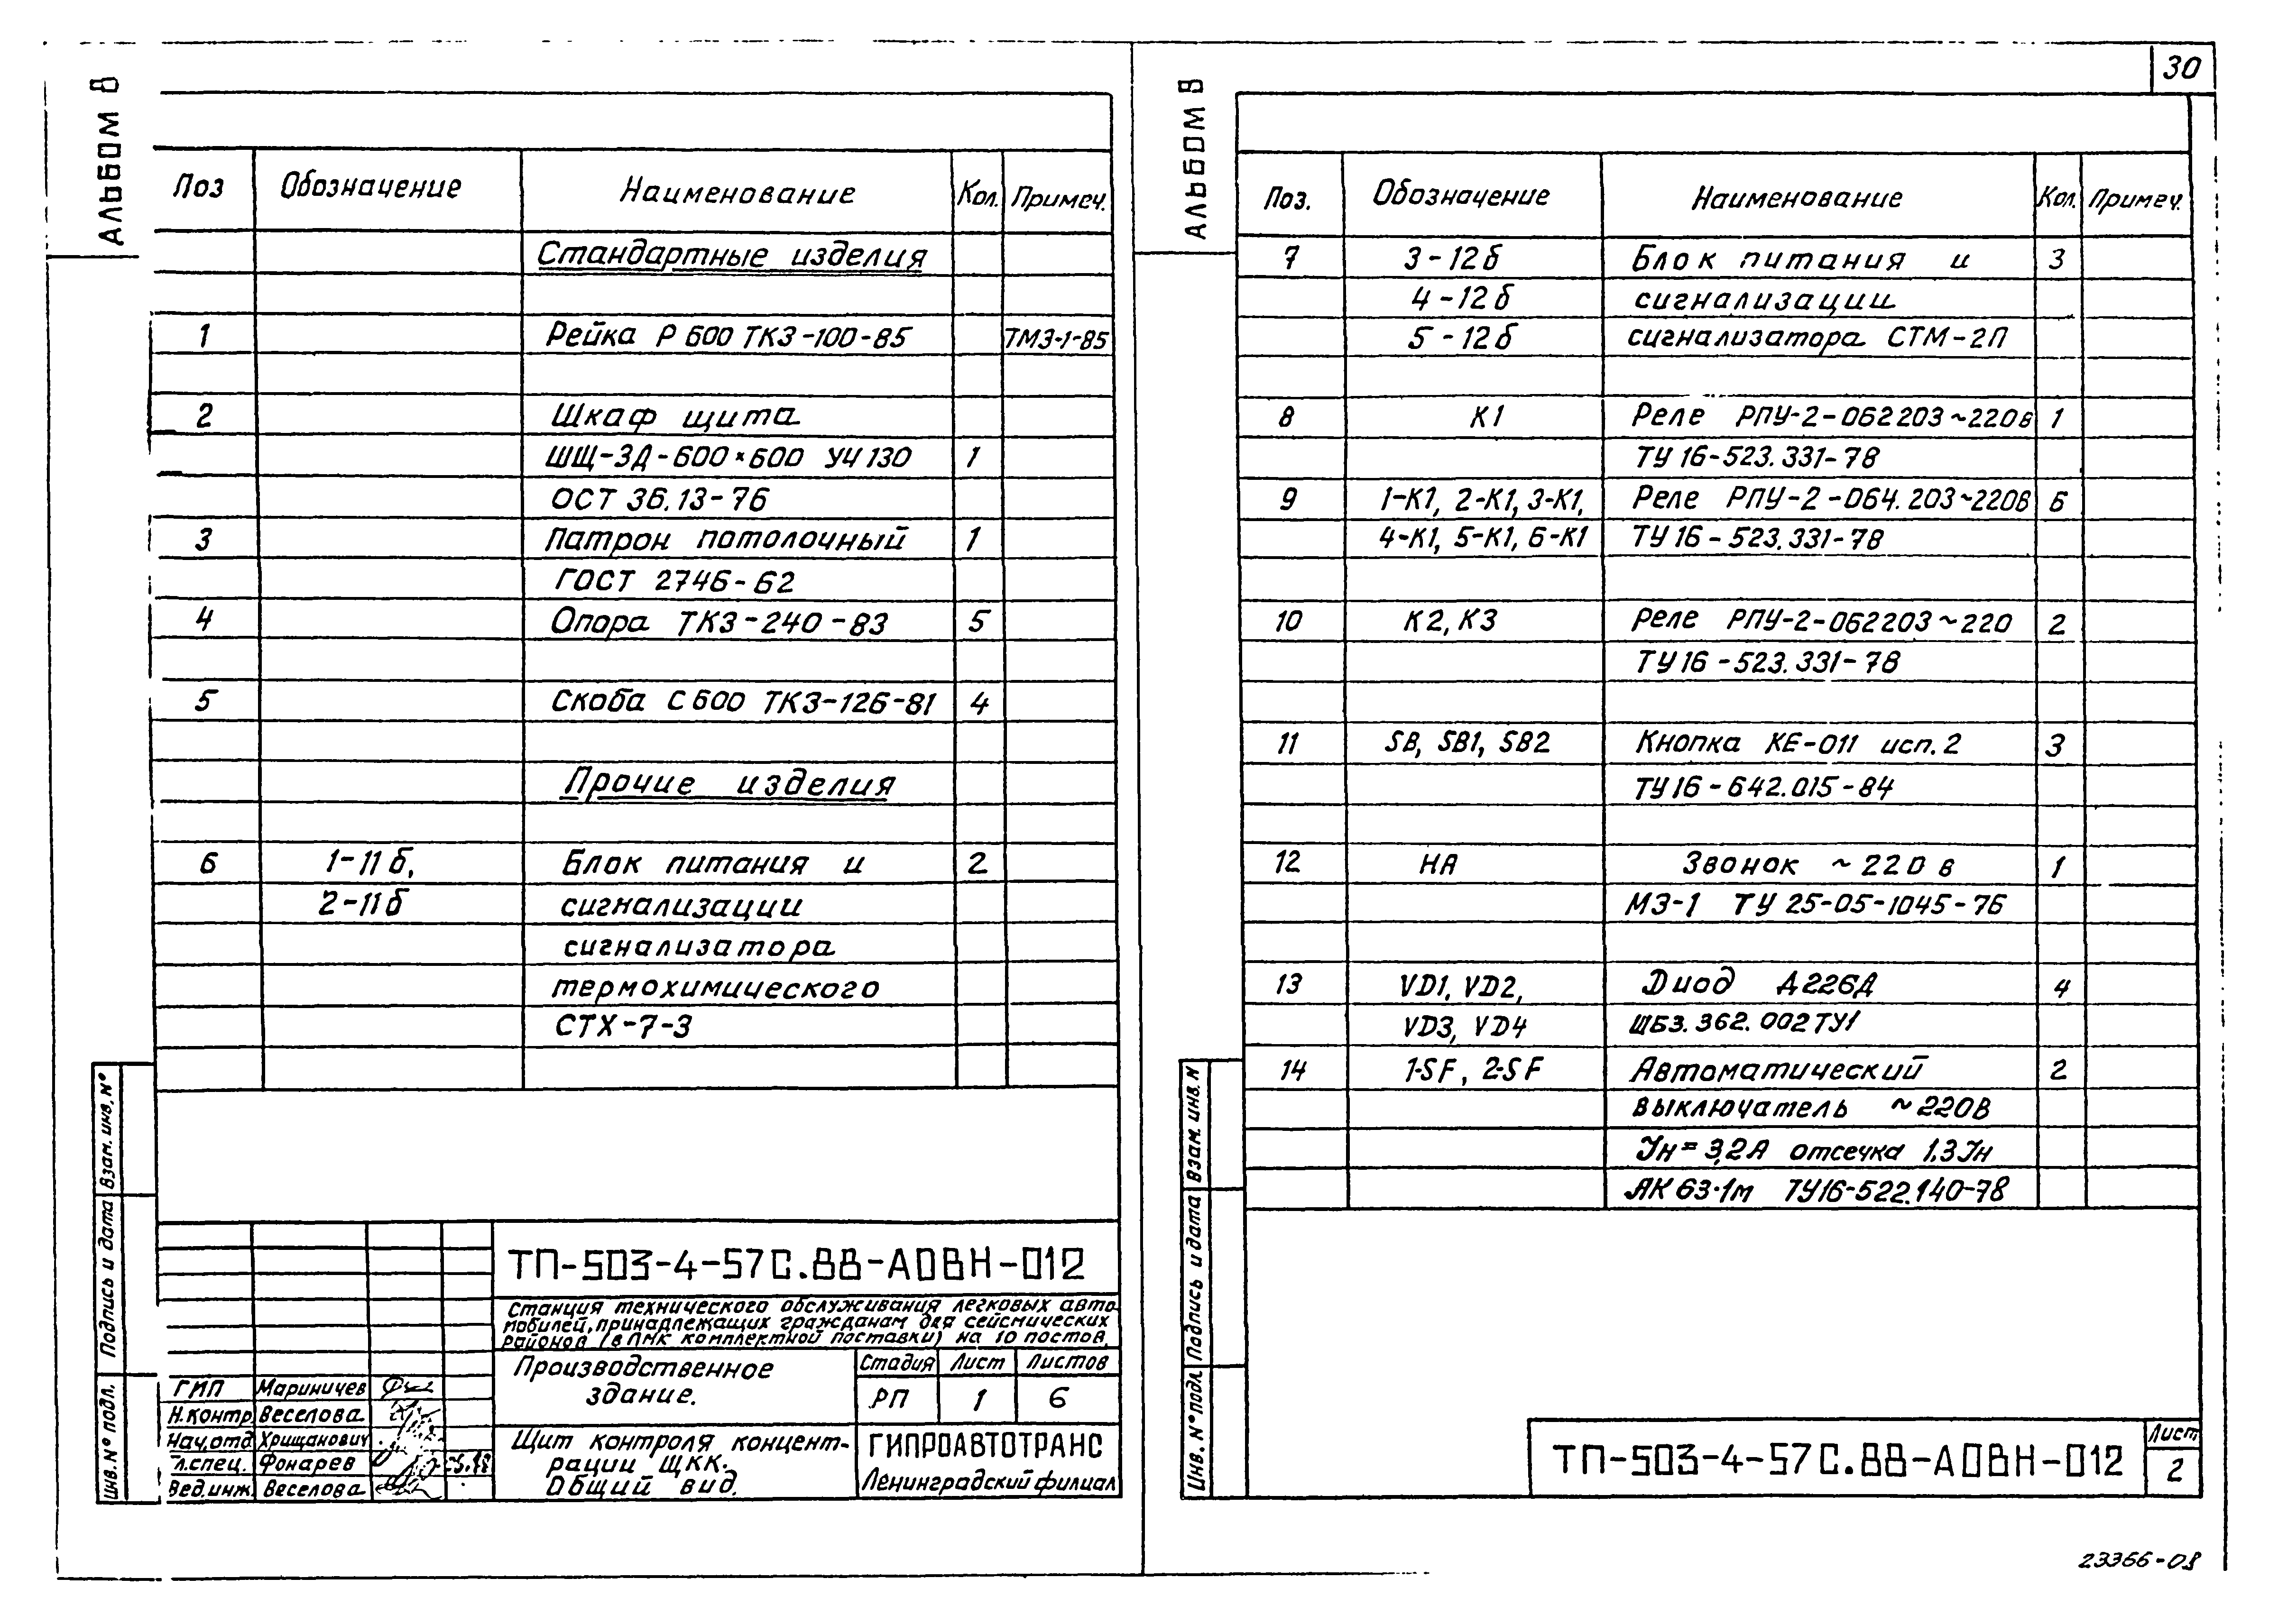 АЛЬБОМ 8
Поз Обозначение Наименование Кол. Примеч.
Стандартные изделия
1 Рейка Р 600 ТКЗ-100-85 ТМЗ-1-85
2 Шкаф щита
ШЩ-ЗД-600×600 УЧ 130 1
ОСТ 36.13-76
3 Патрон потолочный 1
ГОСТ 2746-62
4 Опора ТКЗ-240-83 5
5 Скоба С 600 ТКЗ-126-81 4
Прочие изделия
6 1-11б, Блок питания и 2
2-11б сигнализации
сигнализатора
термохимического
СТХ-7-3
Взам. инв. N°
Подпись и дата
Инв. N° подл.
ТП-503-4-57С.88-АОВН-012
Станция технического обслуживания легковых авто-
мобилей, принадлежащих гражданам для сейсмических
районов (в ЛМК комплектной поставки) на 10 постов.
Производственное
здание.
Стадия Лист Листов
РП 1 6
ГИП Мариничев
Н.контр Веселова
Нач.отд Хрищанович
Гл.спец. Фонарев
Вед.инж Веселова
Щит контроля концент-
рации ЩКК.
Общий вид.
ГИПРОАВТОТРАНС
Ленинградский филиал
30
АЛЬБОМ 8
Поз. Обозначение Наименование Кол. Примеч.
7 3-12б Блок питания и 3
4-12б сигнализации
5-12б сигнализатора СТМ-2П
8 К1 Реле РПУ-2-062203~220в 1
ТУ 16-523.331-78
9 1-К1, 2-К1, 3-К1, Реле РПУ-2-064.203~220В 6
4-К1, 5-К1, 6-К1 ТУ 16-523.331-78
10 К2, К3 Реле РПУ-2-062203~220 2
ТУ 16-523.331-78
11 SB, SB1, SB2 Кнопка КЕ-011 исп. 2 3
ТУ 16-642.015-84
12 НА Звонок ~220 в 1
МЗ-1 ТУ 25-05-1045-76
13 VD1, VD2, Диод Д226Д 4
VD3, VD4 ЩБ3.362.002ТУ1
14 1-SF, 2-SF Автоматический 2
выключатель ~220В
Jн=3,2А отсечка 1,3Jн
АК 63-1м ТУ16-522.140-78
Взам. инв. N
Подпись и дата
Инв. N° подл
ТП-503-4-57С.88-АОВН-012
Лист
2
23366-08